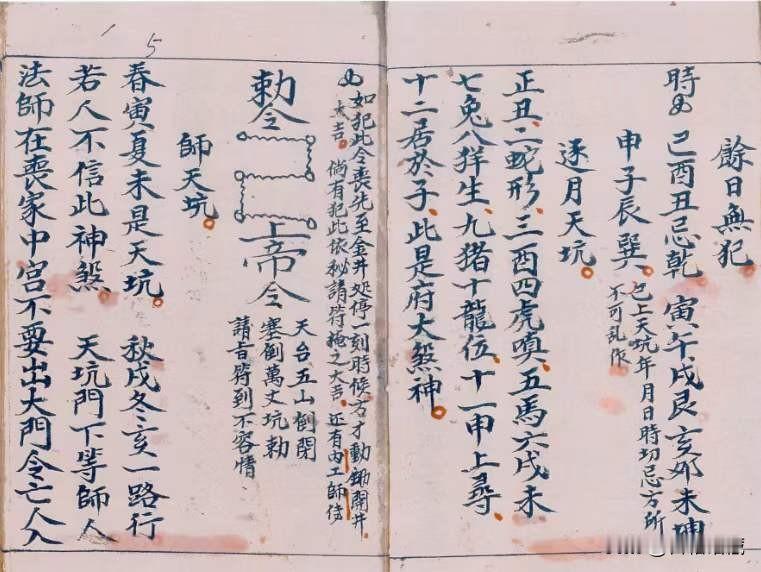 餘日無犯
時 己酉丑忌乾 寅午戌艮亥卯未坤
申子辰巽。已上天坑年月日時切忌方所
不可乱作
逐月天坑。
正丑、二蛇形、三酉四虎嗔、五馬六戌未
七兔八羊生、九猪十龍位、十一申上尋、
十二居於子、此是府大煞神。
15
如犯此令喪先至金井处停一刻時候方才動鋤開井。
大吉。倘有犯此依秘請符掩之大吉、还有內工師傅
勅令
上帝令
天台、五山倒閉
塞倒萬丈坑勅
請旨符到不容情
師天坑。
春寅夏未是天坑。秋戌冬亥一路行
若人不信此神煞。天坑門下等師人
法師在喪家中宮不要出大門令亡人入